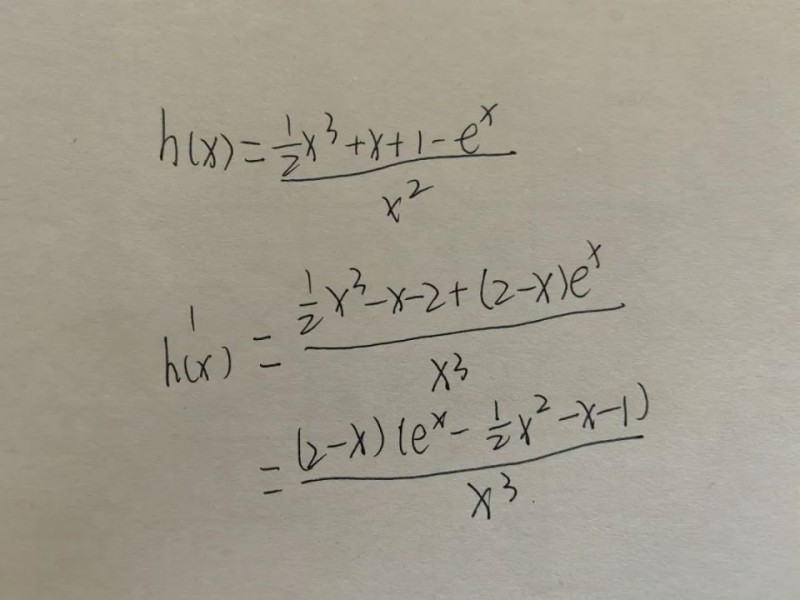 h(x) = \frac{\frac{1}{2}x^3+x+1-e^x}{x^2}
h'(x) = \frac{\frac{1}{2}x^3-x-2+(2-x)e^x}{x^3}
= \frac{(2-x)(e^x-\frac{1}{2}x^2-x-1)}{x^3}